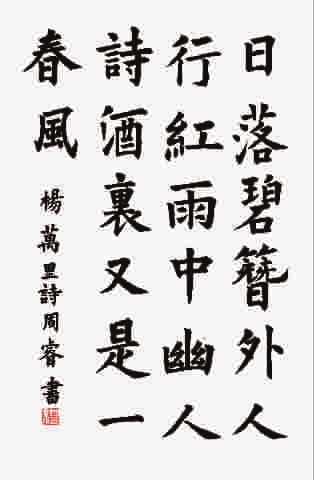 日落碧簪外人
行紅雨中幽人
詩酒裏又是一
春風
楊萬里詩周睿書